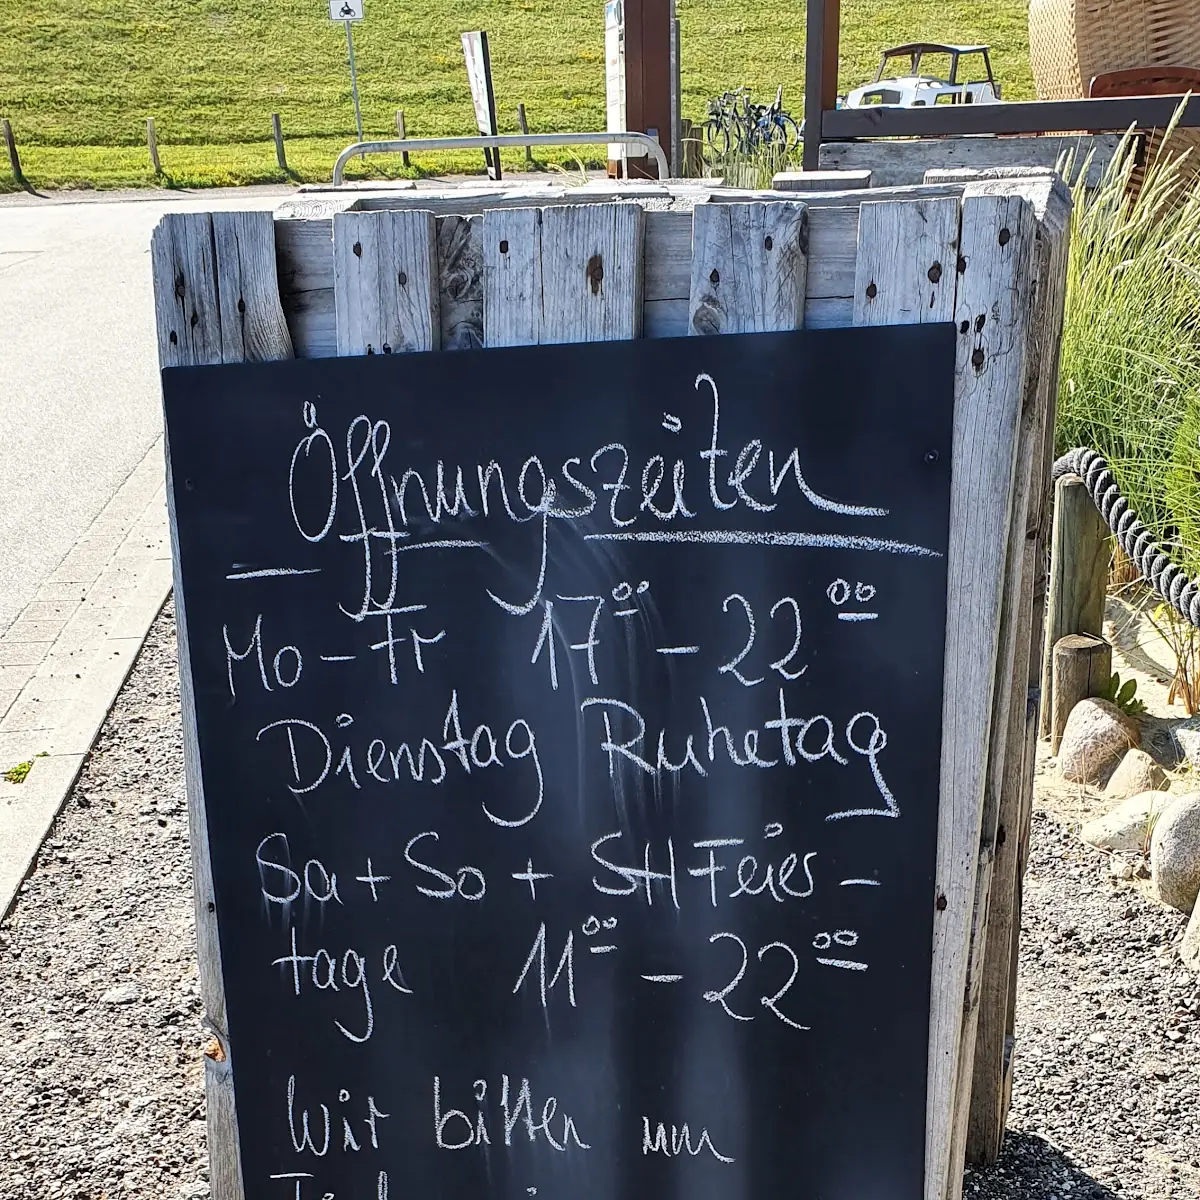 Öffnungszeiten
Mo - Fr 17⁰⁰ - 22⁰⁰
Dienstag Ruhetag
Sa + So + SH Feier -
tage 11⁰⁰ - 22⁰⁰
Wir bitten um